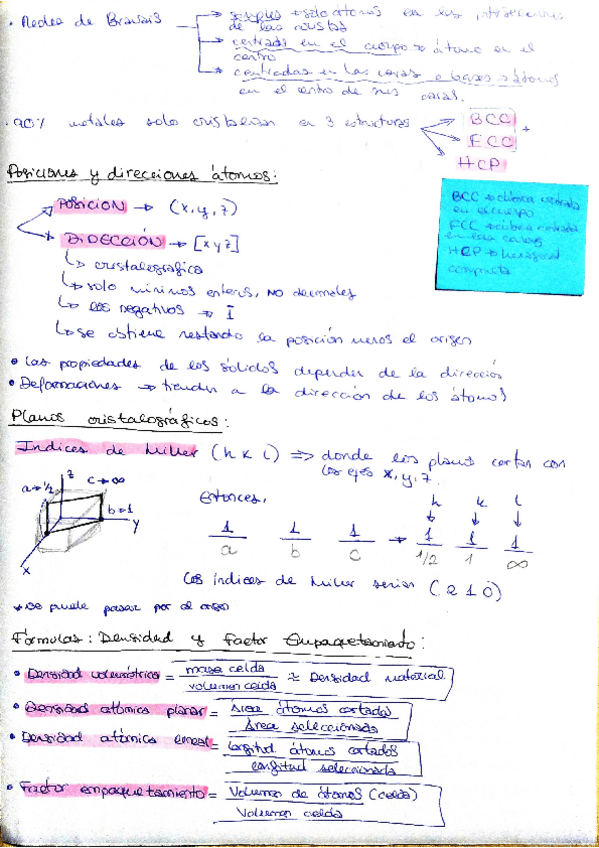 · Redes de Bravais → simples → solo átomos en las intersecciones
de las aristas
→ centrada en el cuerpo → átomo en el
centro
→ centradas en las caras o bases → átomos
en el centro de sus caras.
· 90% metales solo cristalizan en 3 estructuras → BCC
→ FCC
→ HCP
Posiciones y direcciones átomos:
BCC → cúbica centrada
en el cuerpo
FCC → cúbica centrada
en las caras
HCP → hexagonal
compacta
→ POSICIÓN → (x, y, z)
→ DIRECCIÓN → [x y z]
↳ cristalográfica
↳ solo mínimos enteros, NO decimales
↳ los negativos → Ī
↳ se obtiene restando la posición menos el origen
• Las propiedades de los sólidos dependen de la dirección
• Deformaciones → tienden a la dirección de los átomos
Planos cristalográficos:
Indices de Miller (h k l) ⇒ donde los planos cortan con
los ejes x, y, z.
a→1/2 z c→∞
b→1
y
x
Entonces, h k l
↓ ↓ ↓
1/a 1/b 1/c → 1/1/2 1/1 1/∞
Los índices de Miller serían (2 1 0)
pasar por el origen
Fórmulas: Densidad y Factor Empaquetamiento:
• Densidad volumétrica = masa celda / volumen celda ≈ Densidad material
• Densidad atómica planar = Área átomos cortados / Área seleccionada
• Densidad atómica lineal = longitud átomos cortados / longitud seleccionada
• Factor empaquetamiento = Volumen de átomos (celda) / Volumen celda